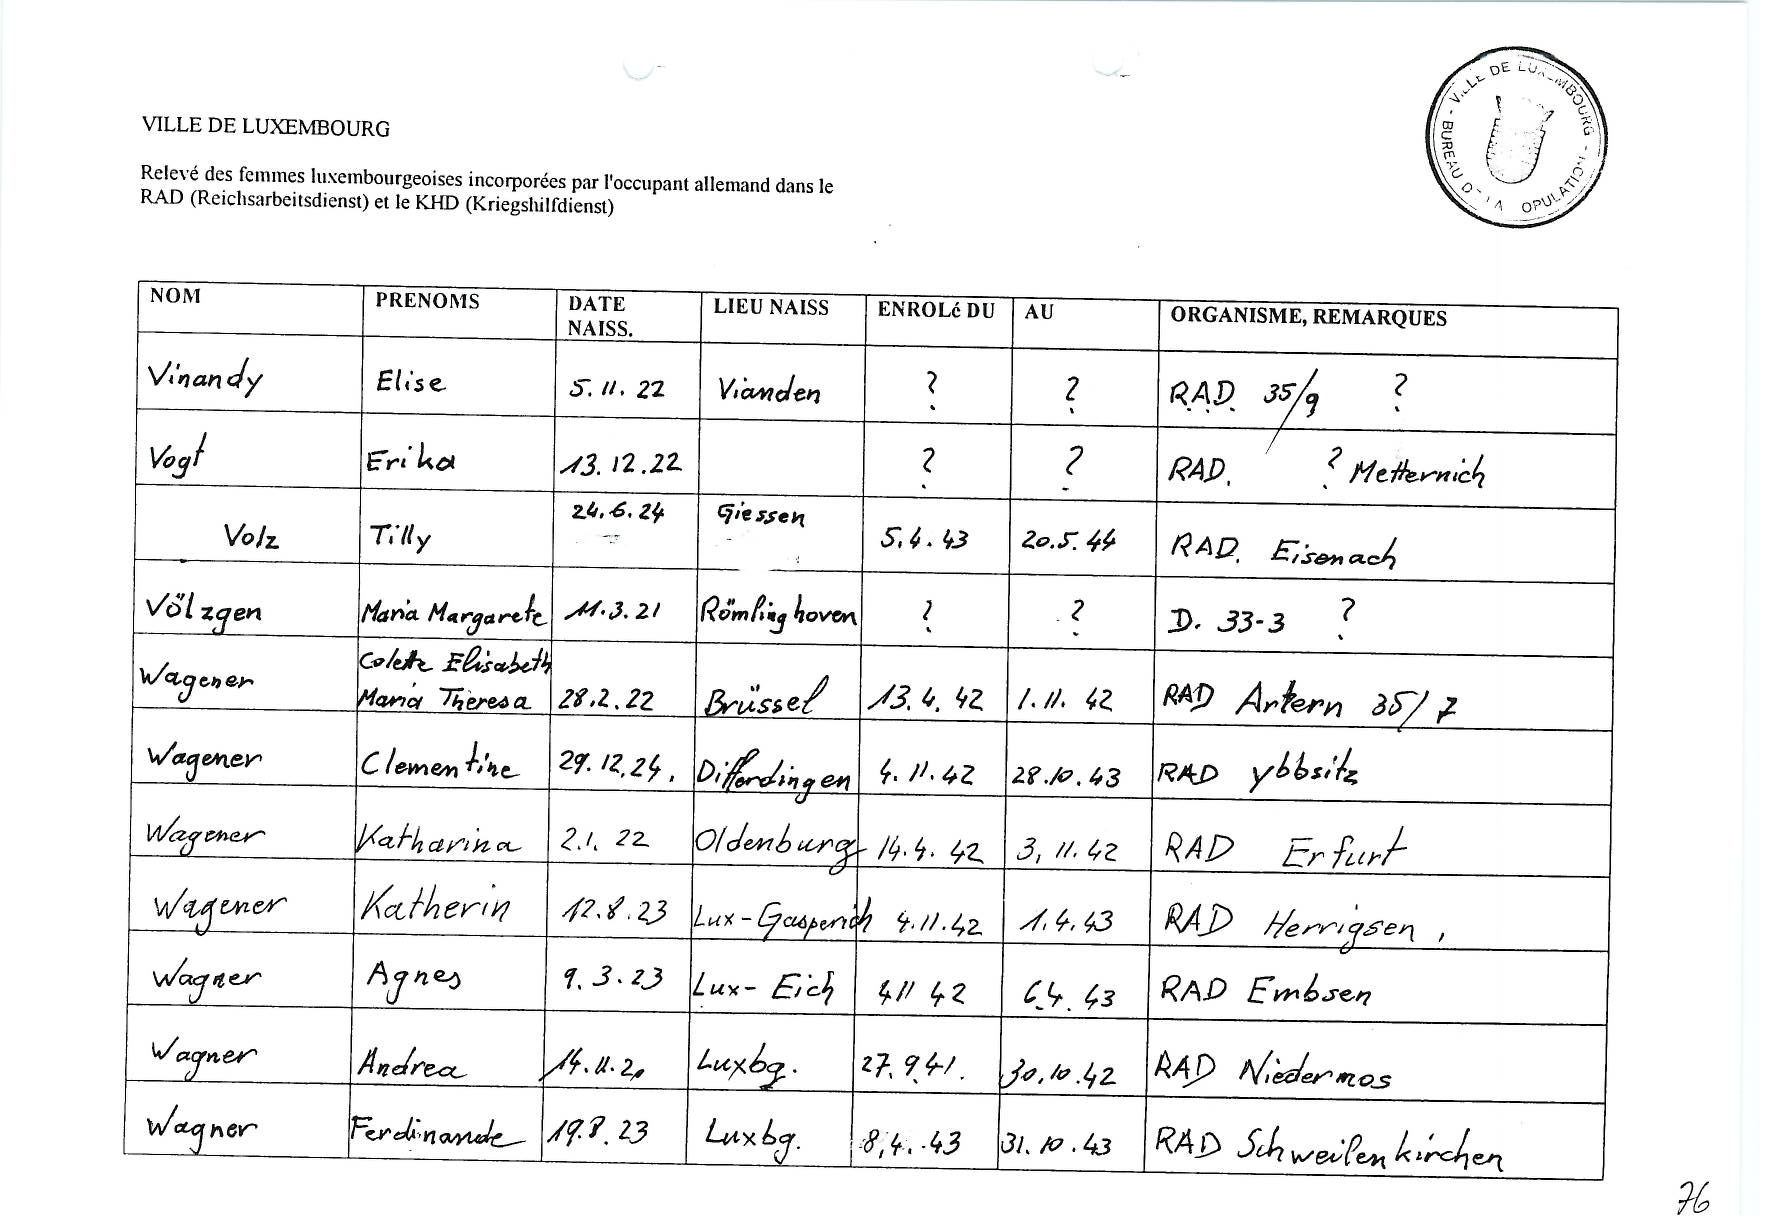 VILLE DE LUXEMBOURG
Relevé des femmes luxembourgeoises incorporées par l'occupant allemand dans le
RAD (Reichsarbeitsdienst) et le KHD (Kriegshilfdienst)
- VILLE DE LUXEMBOURG - BUREAU DE LA POPULATION
NOM PRENOMS DATE NAISS. LIEU NAISS ENROLé DU AU ORGANISME, REMARQUES
Vinandy Elise 5.11.22 Vianden ? ? R.A.D. 35/9 ?
Vogt Erika 13.12.22 ? ? RAD. ? Metternich
Volz Tilly 24.6.24 Giessen 5.4.43 20.5.44 RAD. Eisenach
Völzgen Maria Margarete 11.3.21 Römlinghoven ? ? D. 33-3 ?
Wagener Colette Elisabeth Maria Theresa 28.2.22 Brüssel 13.4.42 1.11.42 RAD Artern 35/7
Wagener Clementine 29.12.24. Differdingen 4.11.42 28.10.43 RAD Ybbsitz
Wagener Katharina 2.1.22 Oldenburg 14.4.42 3,11.42 RAD Erfurt
Wagener Katherin 12.8.23 Lux-Gasperich 4.11.42 1.4.43 RAD Herrigsen,
Wagner Agnes 9.3.23 Lux-Eich 4 11 42 6.4.43 RAD Embsen
Wagner Andrea 14.11.20 Luxbg. 27.9.41. 30.10.42 RAD Niedermos
Wagner Ferdinande 19.8.23 Luxbg. 8,4.43 31.10.43 RAD Schweilenkirchen
76